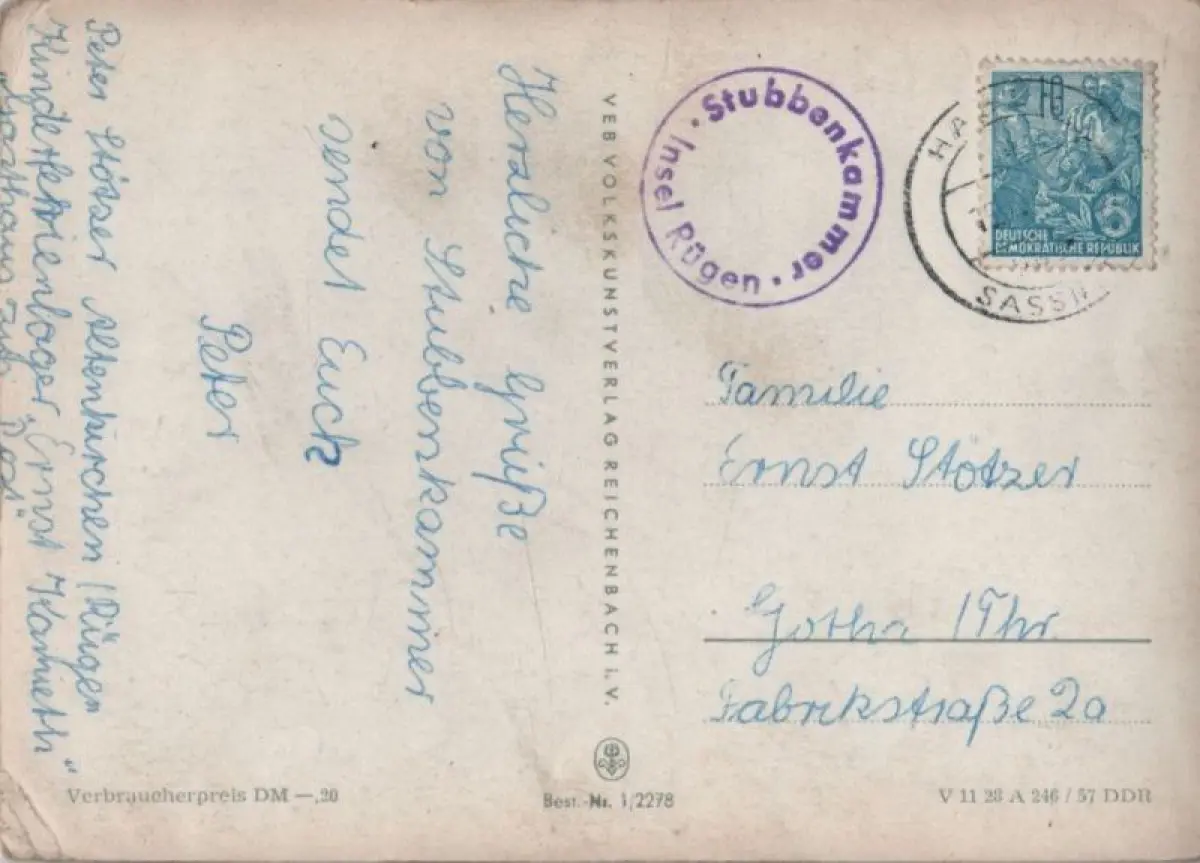 Peter Stötzer Altenkirchen/Rügen
Kinderferienlager „Ernst Kamieth“
Herzliche Grüße
von Stubbenkammer
sendet Euch
Peter
VEB VOLKSKUNSTVERLAG REICHENBACH i. V.
· Stubbenkammer ·
Insel Rügen
10
5
DEUTSCHE
DEMOKRATISCHE REPUBLIK
Familie
Ernst Stötzer
Gotha /Thr.
Fabrikstraße 2a
Verbraucherpreis DM —,20
Best.-Nr. 1/2278
V 11 28 A 246 / 57 DDR